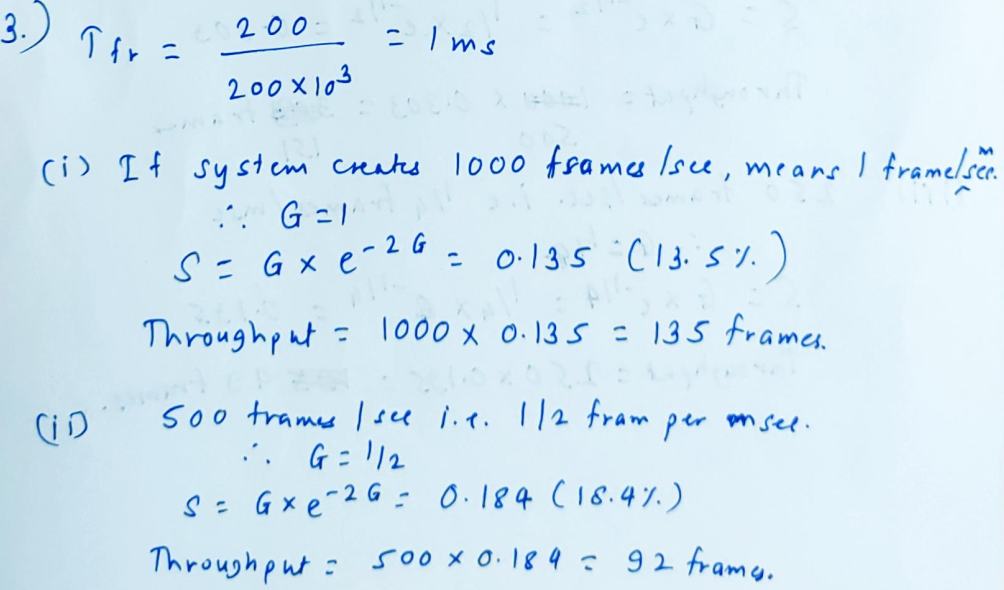 3.) Tfr = 200 / 200 x 10^3 = 1 ms
(i) If system creates 1000 frames /sec, means 1 frame/msec.
∴ G = 1
S = G x e^-2G = 0.135 (13.5%.)
Throughput = 1000 x 0.135 = 135 frames.
(ii) 500 frames /sec i.e. 1/2 fram per msec.
∴ G = 1/2
S = G x e^-2G = 0.184 (18.4%.)
Throughput = 500 x 0.184 = 92 frames.